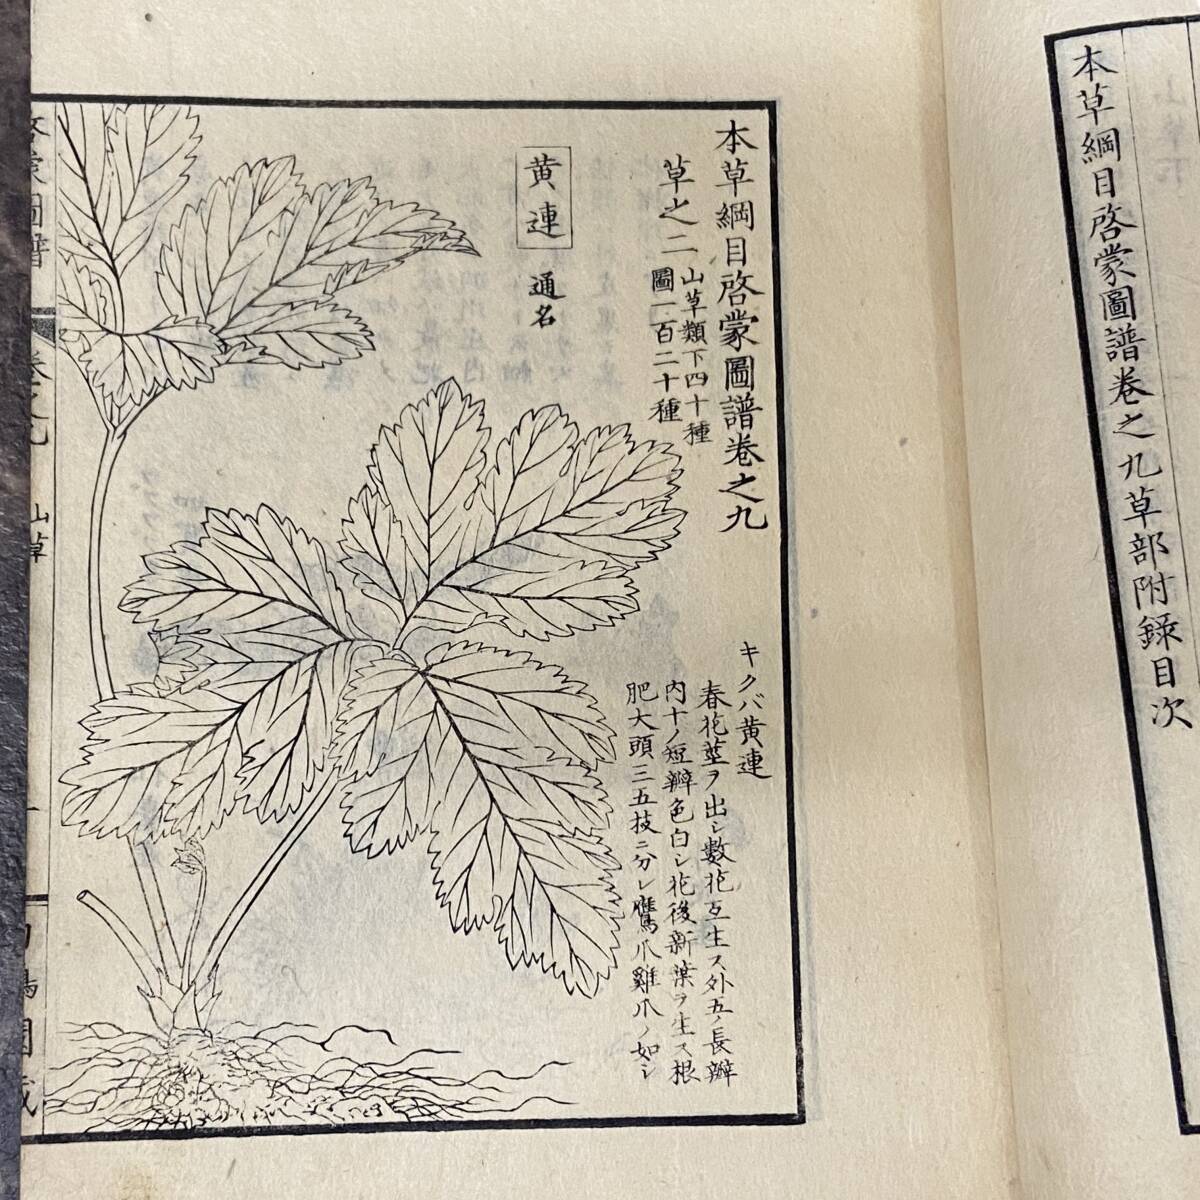 本草綱目啓蒙圖譜巻之九草部附錄目次
本草綱目啓蒙圖譜巻之九
草之二
山草類下四十種
圖一百二十種
黄連
通名
キクバ黄連
春花莖ヲ出シ數花互生ス外五ノ長瓣
内十ノ短瓣色白シ花後新葉ヲ生ス根
肥大頭三五枝ニ分レ鷹爪雞爪ノ如シ
啓蒙圖譜
巻之九
山草
一